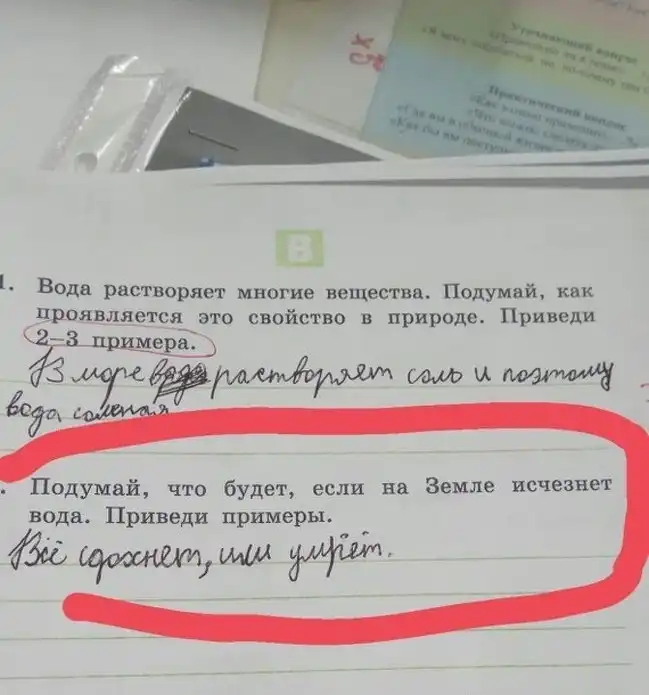 Уточняющий вопрос
Практический вопрос
В
1. Вода растворяет многие вещества. Подумай, как
проявляется это свойство в природе. Приведи
2–3 примера.
В море вода растворяет соль и поэтому
вода соленая
. Подумай, что будет, если на Земле исчезнет
вода. Приведи примеры.
Всё сдохнет, или умрёт.